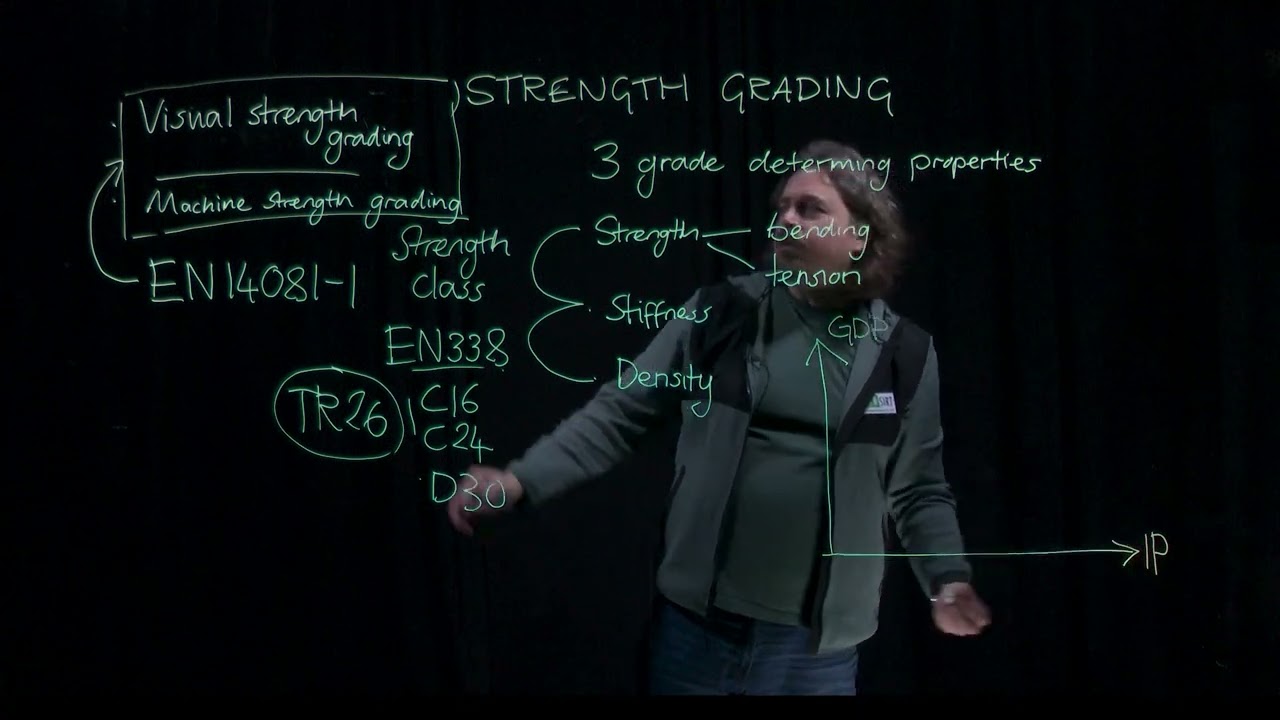 STRENGTH GRADING
Visual strength
grading
Machine strength grading
EN14081-1
Strength
class
EN338
TR26
C16
C24
D30
3 grade determing properties
Strength
bending
tension
Stiffness
Density
GDP
IP